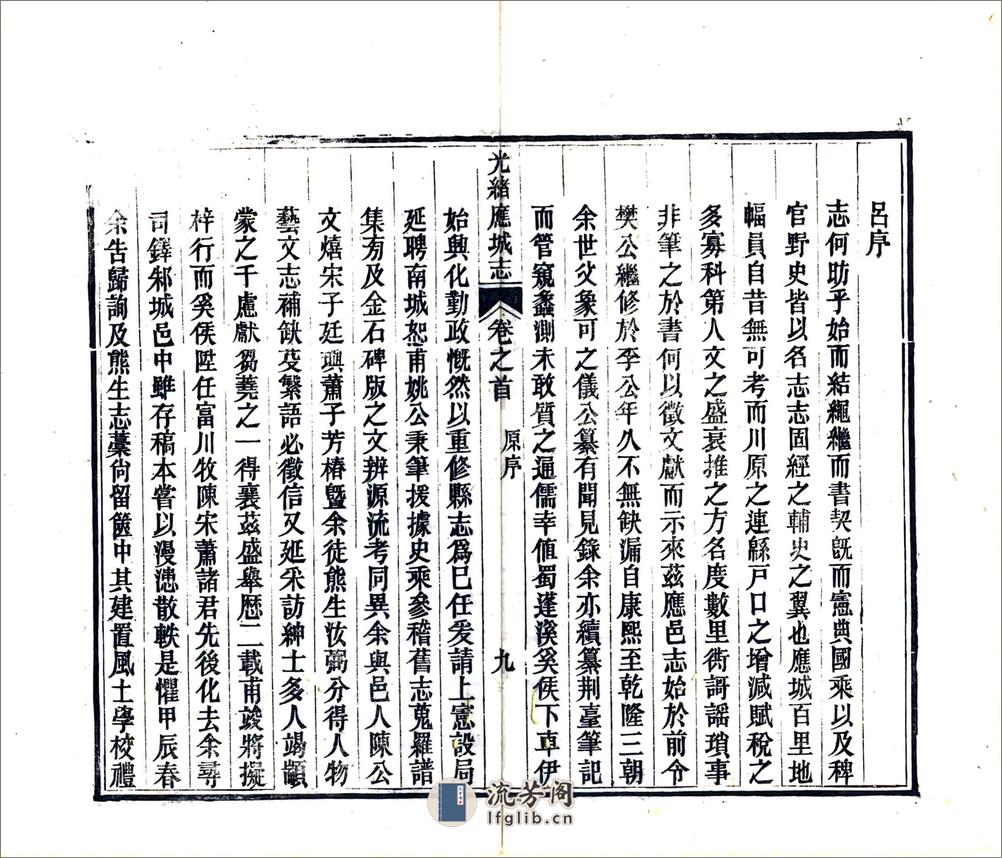 呂序
志何昉乎始而結繩繼而書契旣而憲典國乘以及稗
官野史皆以名志志固經之輔史之翼也應城百里地
幅員自昔無可考而川原之連緜戸口之增減賦稅之
多寡科第人文之盛衰推之方名度數里衖謌謡瑣事
非筆之於書何以徵文獻而示來茲應邑志始於前令
樊公繼修於李公年久不無缺漏自康熙至乾隆三朝
余世父象可之儀公纂有聞見錄余亦續纂荆臺筆記
而管窺蠡測未敢質之通儒幸値蜀蓬溪奚侯下車伊
光緒應城志 卷之首 原序 九
始興化勤政慨然以重修縣志爲巳任爰請上憲設局
延聘南城恕甫姚公秉筆援據史乘參稽舊志蒐羅譜
集旁及金石碑版之文辨源流考同異余與邑人陳公
文熺宋子廷璵蕭子芳椿曁余徒熊生汝弼分得人物
藝文志補缺芟繁語必徵信又延采訪紳士多人竭顓
蒙之千慮獻芻蕘之一得襄茲盛舉歷二載甫竣將擬
梓行而奚侯陞任富川牧陳宋蕭諸君先後化去余尋
司鐸邾城邑中雖存稿本嘗以漫漶散軼是懼甲辰春
余告歸詢及熊生志藳尙留篋中其建置風土學校禮
流芳阁
lfglib.cn